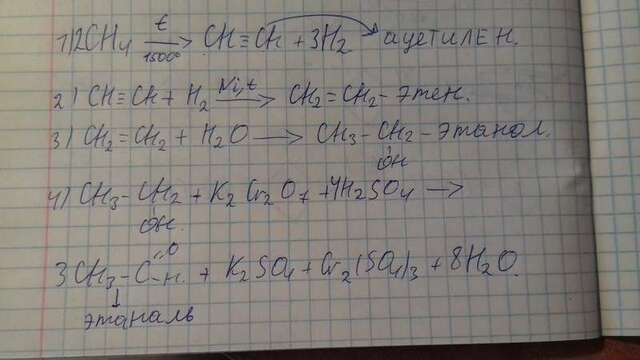 1) 2CH4 t 1500° → CH≡CH + 3H2 ацетилен.
2) CH≡CH + H2 Ni,t → CH2=CH2 – этен.
3) CH2=CH2 + H2O → CH3–CH2–этанол.
OH
4) CH3–CH2 + K2Cr2O7 + 4H2SO4 →
OH.
3CH3–C=O–H + K2SO4 + Cr2(SO4)3 + 8H2O.
этаналь